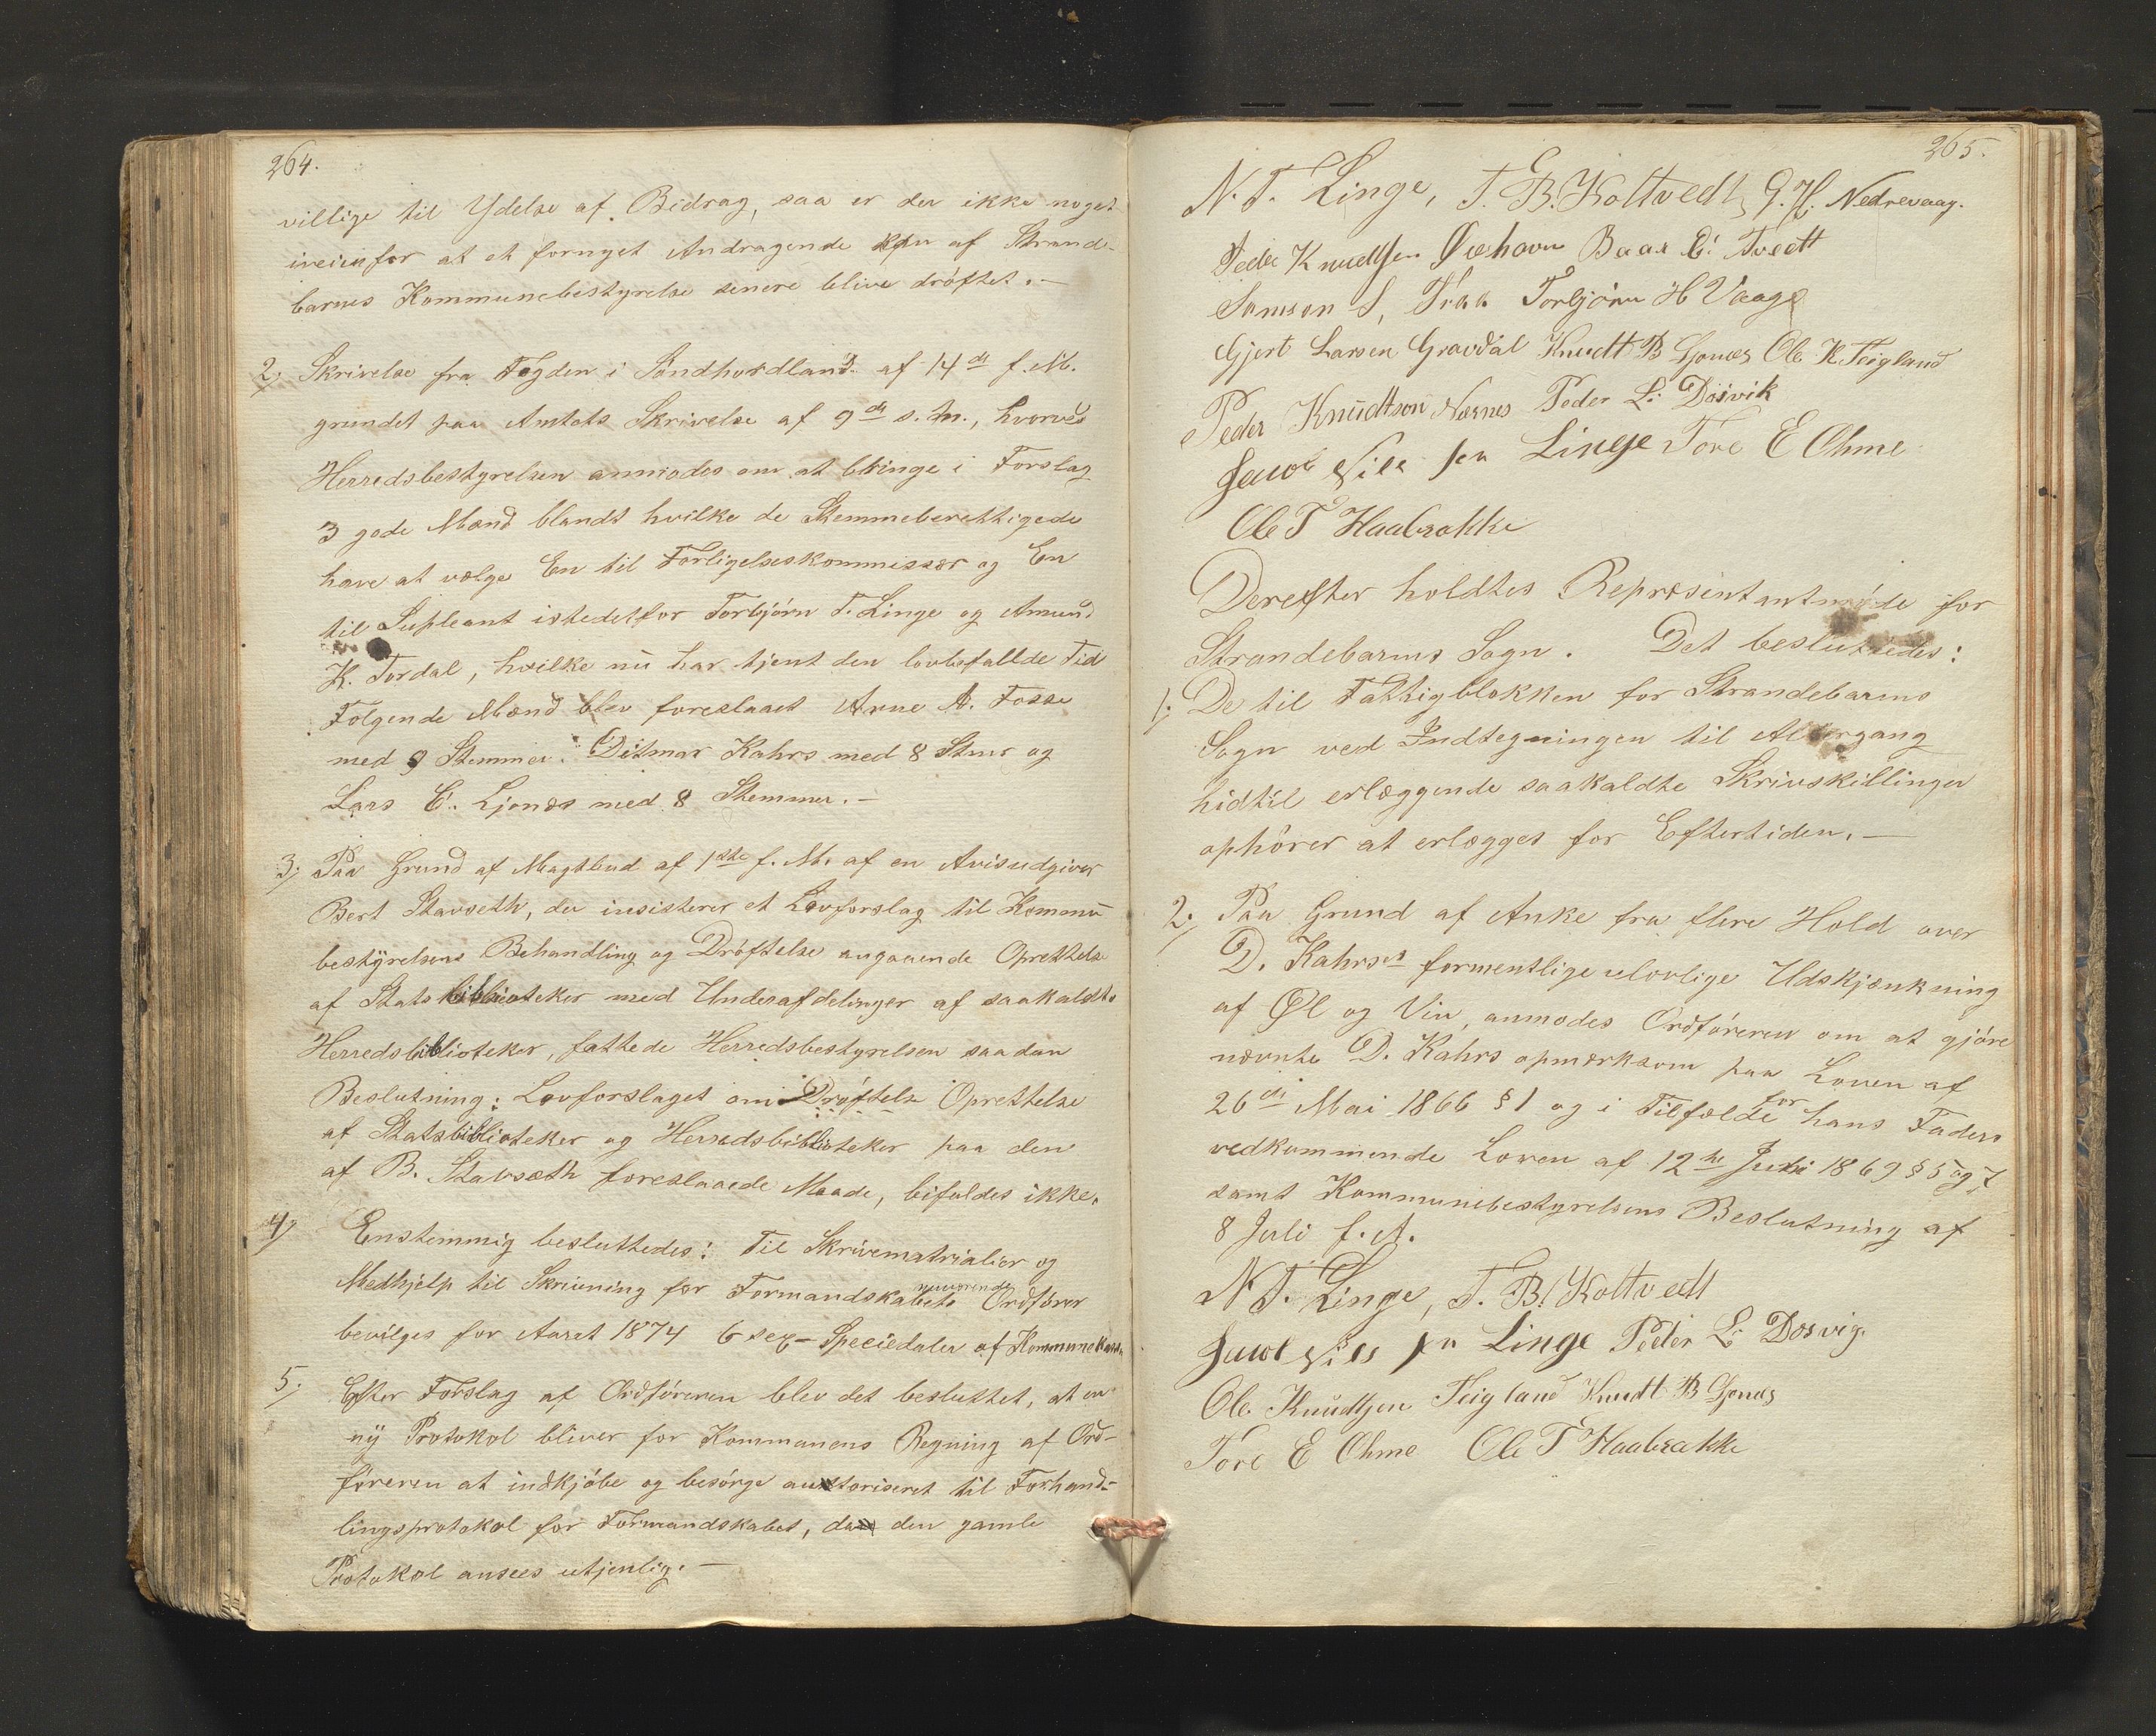 264.
villige til Ydelse af Bidrag, saa er der ikke noget
iveien for at et fornyet Andragende kan af Strande-
barms Kommunebestyrelse senere blive drøftet. -
2, Skrivelse fra Fogden i Søndhordland af 14de f. M.
grundet paa Amtets Skrivelse af 9de s. M., hvorved
Herredsbestyrelsen anmodes om at bringe i Forslag
3 gode Mænd blandt hvilke de Stemmeberettigede
have at vælge En til Forligelseskommissær og En
til Supleant istedetfor Torbjørn T. Linge og Amund
K. Tordal, hvilke nu har tjent den lovbefallde Tid
Følgende Mænd blev foreslaaet Arne A. Fosse
med 9 Stemmer. Ditmar Kahrs med 8 Stmr og
Lars E. Ljonæs med 8 Stemmer. -
3, Paa Grund af Magtbud af 1ste f. M. af en Avisudgiver
Bert Stavseth, der insisterer et Lovforslag til Kommun
bestyrelsens Behandling og Drøftelse angaaende Oprettelse
af Statsbiblioteker med Underafdelinger af saakaldte
Herredsbiblioteker, fattede Herredsbestyrelsen saadan
Beslutning: Lovforslaget om Drøftelse Oprettelse
af Statsbiblioteker og Herredsbiblioteker paa den
af B. Stavsæth foreslaaede Maade, bifaldes ikke.
4, Enstemmig besluttedes: Til Skrivematrialier og
Medhjelp til Skrivning for Formandskabets nuværende Ordfører
bevilges for Aaret 1874 6 sex - Speciedaler af Kommunekassen
5, Efter Forslag af Ordføreren blev det besluttet, at en
ny Protokol bliver for Kommunens Regning af Ord-
føreren at indkjøbe og besørge auktoriseret til Forhand-
lingsprotokol for Formandskabet, da den gamle
Protokol ansees utjenlig. -
265.
N. T. Linge, T. B. Koltvedt, G. H. Nedrevaag.
Peder Knudtsen Øvehavn Baar E. Tvedt
Samson S, Traa Torbjørn H Vaage
Gjert Larsen Gravdal Knudt B Ljonæs Ole K. Teigland
Peder Knudtson Nernes Peder L. Døsvik
Jacob Nils sen Linge Tore E Ohme
Ole T Haabrække
Derefter holdtes Repræsentantmøde for
Strandebarms Sogn. Det besluttedes:
1, De til Fattigblokken for Strandebarms
Sogn ved Indtegningen til Altergang
hidtil erlæggende saakaldte Skriveskillinger
ophører at erlægges for Eftertiden. -
2, Paa Grund af Anke fra flere Hold over
D. Kahrses formentlige ulovlige Udskjænkning
af Øl og Vin, anmodes Ordføreren om at gjøre
nævnte D. Kahrs opmærksom paa Loven af
26de Mai 1866 § 1 og i Tilfælde for hans Faders
vedkommende Loven af 12te Juli 1869 § 5 og 7,
samt Kommunebestyrelsens Beslutning af
8 Juli f. A.
N T. Linge, T. B. Koltvedt
Jacob Nils sen Linge Peder L. Døsvig.
Ole Knudtsen Teigland Knudt B Ljonæs
Tore E Ohme Ole T Haabrække